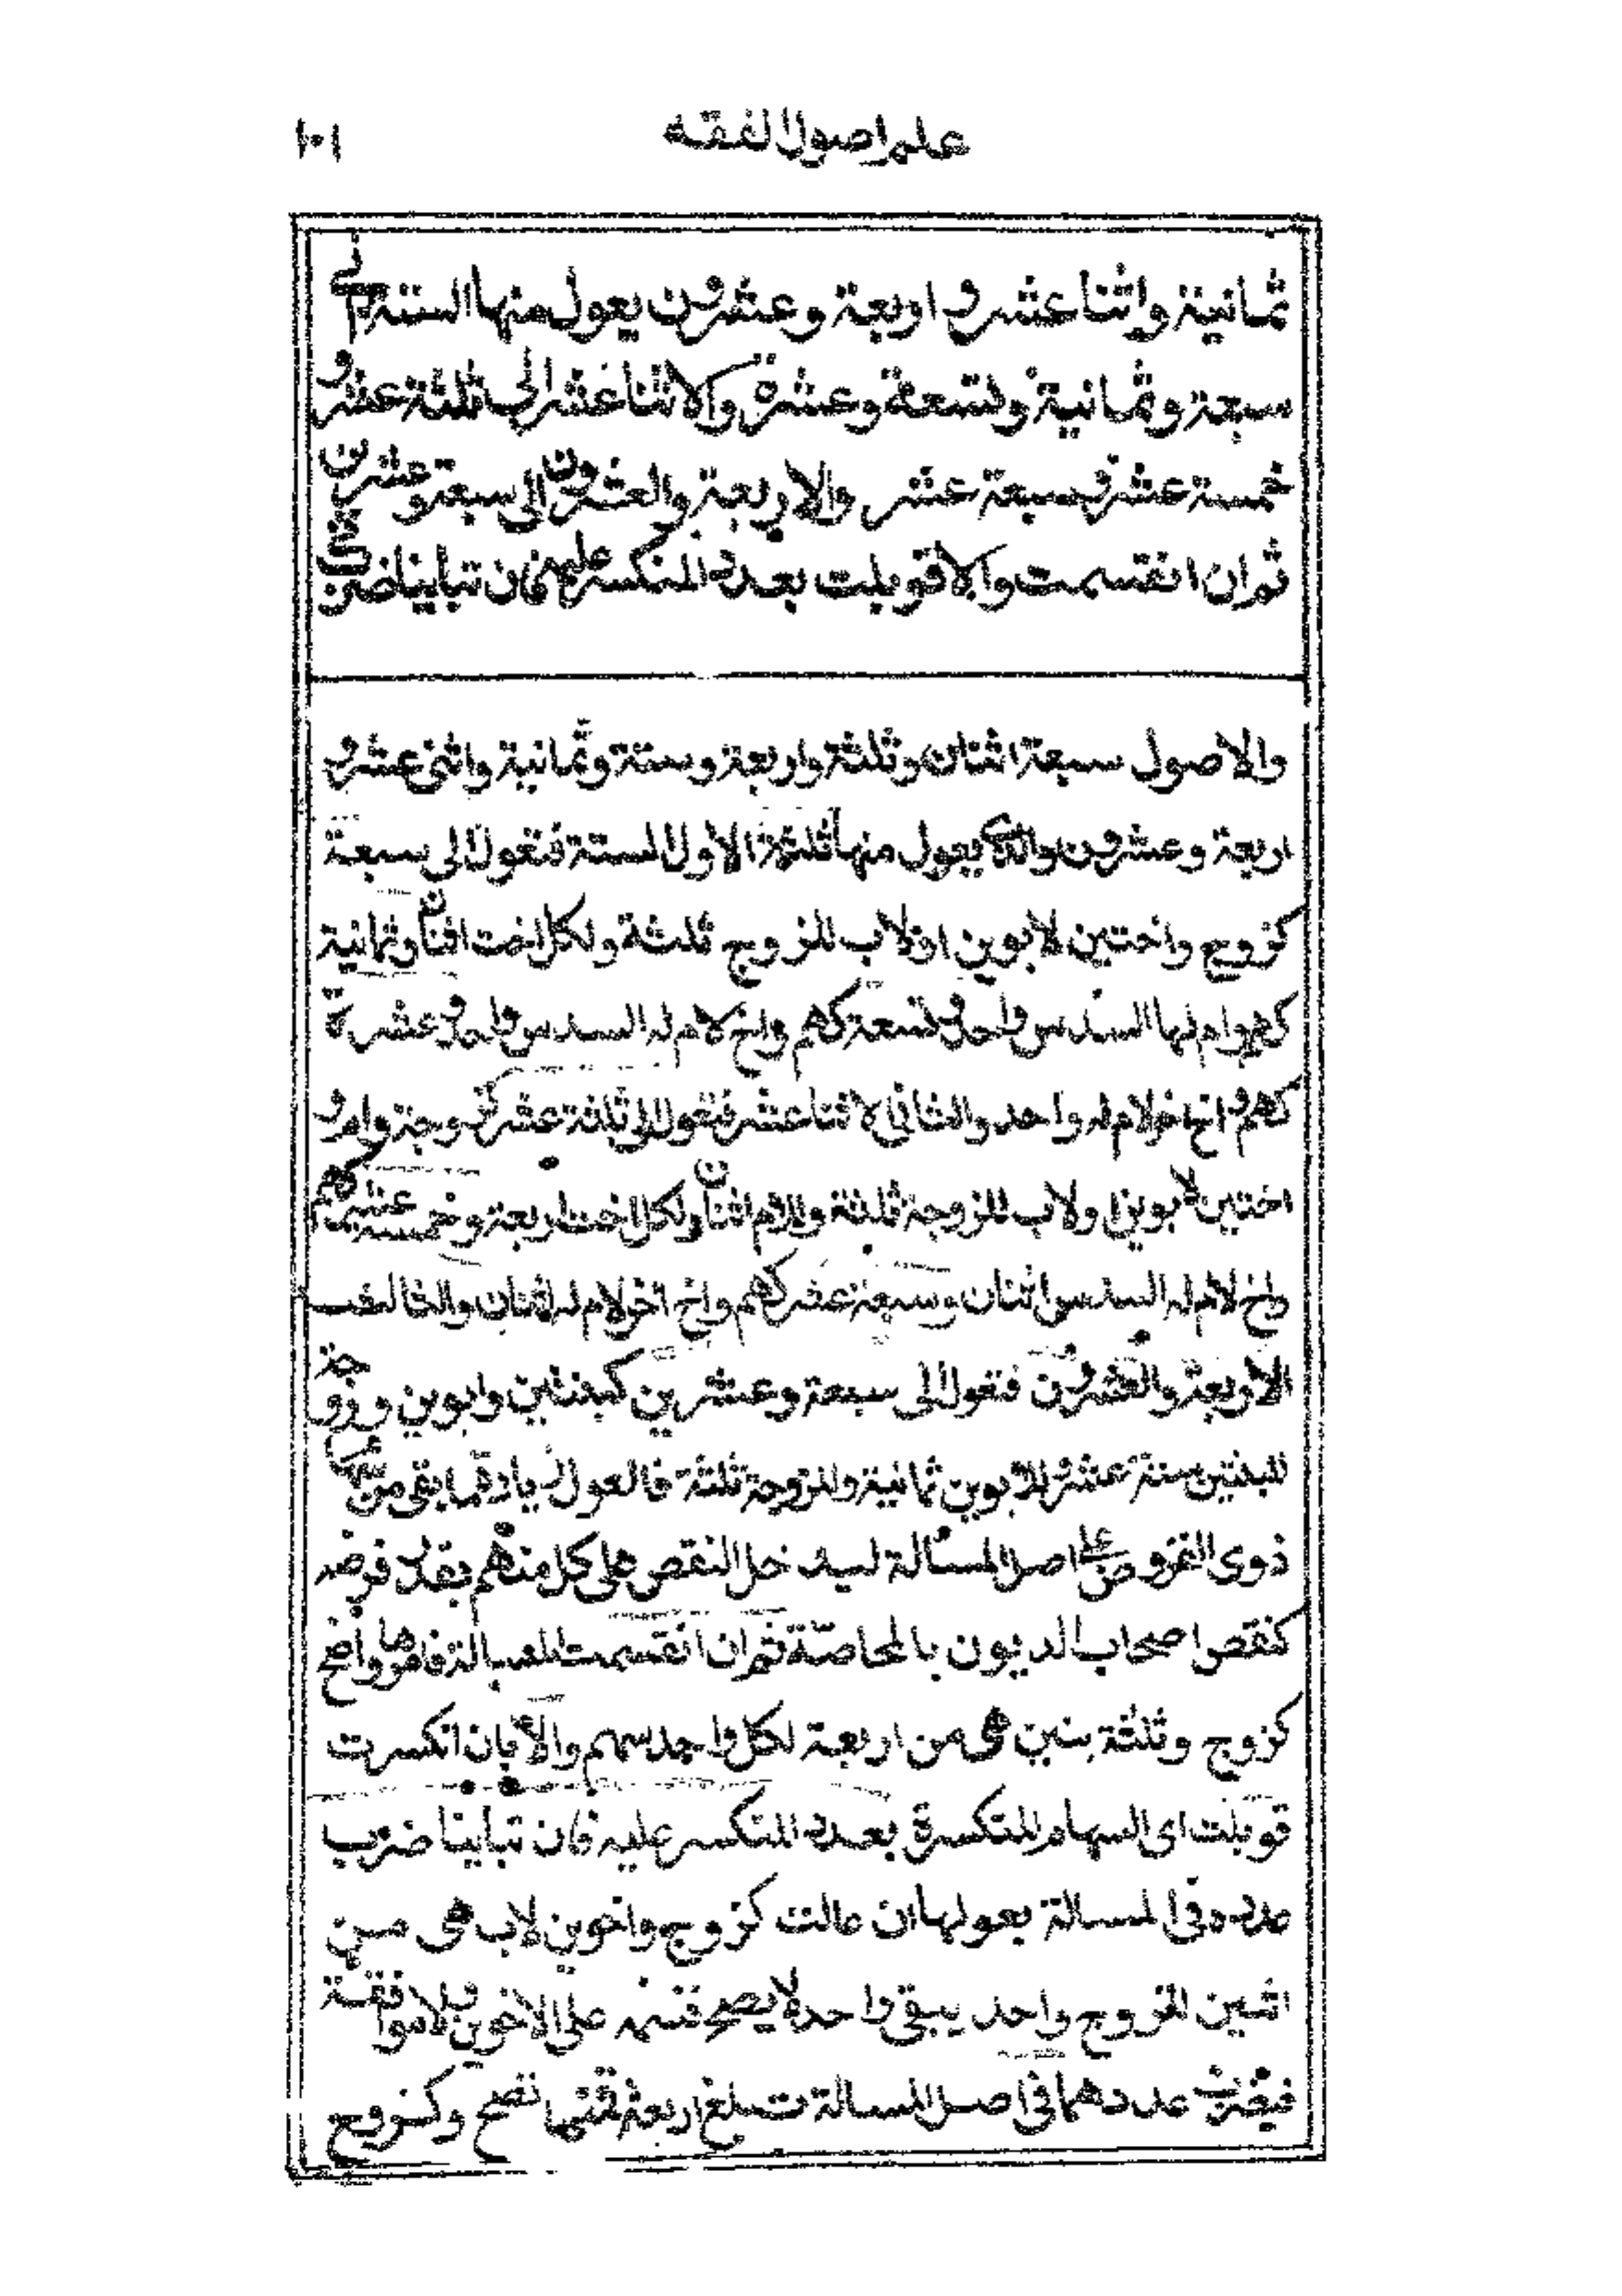 علم اصول الفقه
١٠١
ثمانية واثنا عشر و اربعة وعشرون يعول منها الستة الى
سبعة وثمانية وتسعة وعشرة والاثنا عشر الى ثلثة عشر و
خمسة عشر وسبعة عشر والاربعة والعشرون الى سبعة وعشرين
ثم ان انقسمت والا قوبلت بعدد المنكسر عليه فان تباينا ضرب
والاصول سبعة اثنان وثلثة واربعة وستة وثمانية واثنى عشر و
اربعة وعشرون والذى يعول منها ثلثة الاول الستة فتعول الى سبعة
كزوج واختين لابوين اولاب للزوج ثلثة ولكل اخت اثنان وثمانية
كهم وام لها السدس واحد وتسعة كهم واخ لام له السدس واحد وعشرة
كهم و اخ اخر لام له واحد والثانى الاثنا عشر فتعول الى ثلثة عشر كزوجة وام و
اختين لابوين اولاب للزوجة ثلثة وللام اثنان ولكل اخت اربعة وخمسة عشر كهم
واخ لام له السدس اثنان وسبعة عشر كهم واخ اخر لام له اثنان والثالث
الاربعة والعشرون فتعول الى سبعة وعشرين كبنتين وابوين وزوجة
للبنتين ستة عشر وللابوين ثمانية وللزوجة ثلثة فالعول زيادة ما بقى من
ذوى الفروض على اصل المسألة ليدخل النقص على كل منهم بقدر فرضه
كنقص اصحاب الديون بالمحاصّة ثم ان انقسمت المسالة فامرها واضح
كزوج وثلثة بنين هى من اربعة لكل واحد سهم والا بان انكسرت
قوبلت اى السهام المنكسرة بعدد المنكسر عليه فان تباينا ضرب
عدده فى المسالة بعولها ان عالت كزوج واخوين لاب هى من
اثنين للزوج واحد يبقى واحد لا يصح قسمه على الاخوين ولا موافقة
فيضرب عددهما فى اصل المسالة تبلغ اربعة فمنها تصح وكزوج